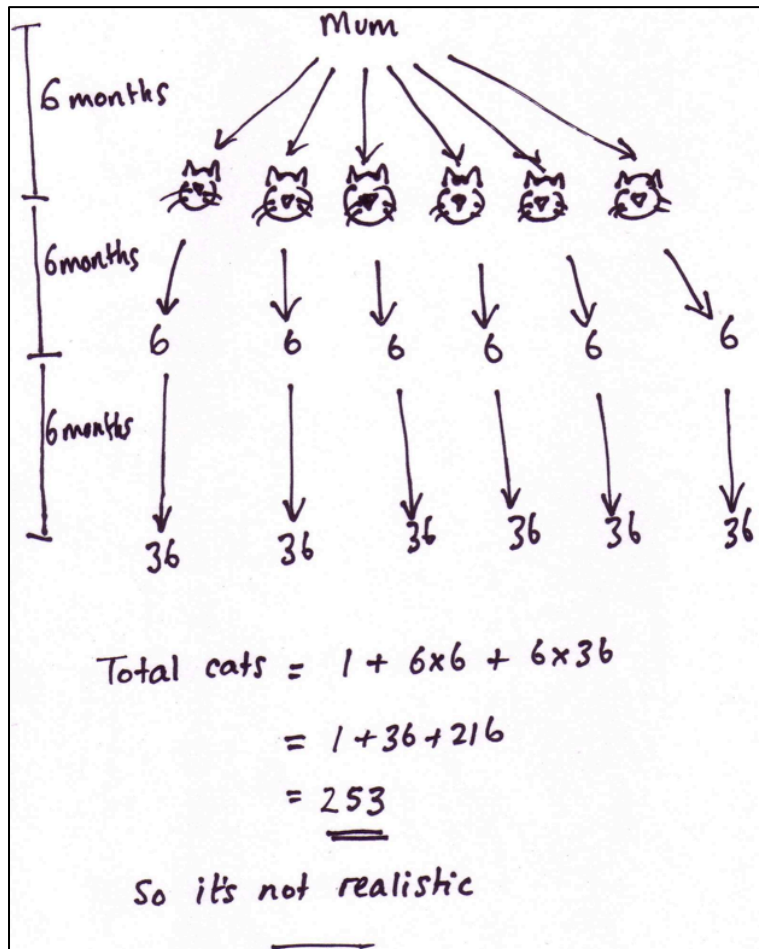 Mum
6 months
6 months
6 6 6 6 6 6
6 months
36 36 36 36 36 36
Total cats = 1 + 6x6 + 6x36
= 1 + 36 + 216
= 253
So it's not realistic